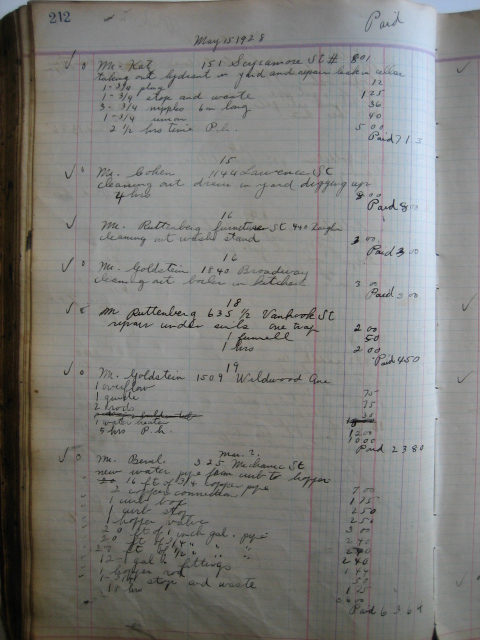 212
Paid
May 15 1928
Mr. Kat 151 Sycamore St # 801
taking out hydrant in yard and repair leak in cellar
1 - 3/4 plug 12
1 - 3/4 stop and waste 1 25
3 - 3/4 nipples 6 in long 36
1 - 3/4 union 40
2 1/2 hrs time P.h. 5 00
Paid 7 13
15
Mr. Cohen 1144 Lawrence St
cleaning out drain in yard digging up
4 hrs 8 00
Paid 8 00
16
Mr. Ruttenberg furniture St 440
cleaning out wash stand 3 00
Paid 3 00
16
Mr. Goldstein 1840 Broadway
cleaning out boiler in kitchen 3 00
Paid 3 00
18
Mr Ruttenberg 635 1/2 Vanhook St
repair under sink one trap 2 00
1 funnell 50
1 hrs 2 00
Paid 4 50
19
Mr. Goldstein 1509 Wildwood Ave
1 overflow 75
1 guide 75
2 rods 30
1 water heater 12 00
5 hrs P.h. 10 00
Paid 23 80
Mr. Bevil. 325 Mechanic St
new water pipe from curb to hopper
16 ft of 3/4 copper pipe 7 00
2 copper connection 1 75
1 curb box 2 50
1 curb stop 2 50
1 hopper valve 3 00
20 ft of 1 inch gal. pipe 2 40
20 ft of 1/4 " " "
ft of 1/2 " " " 2 40
12 - 1 gal fittings
1 hopper rod 50
1 - 3/4 stop and waste 1 25
18 hrs
Paid 63 64